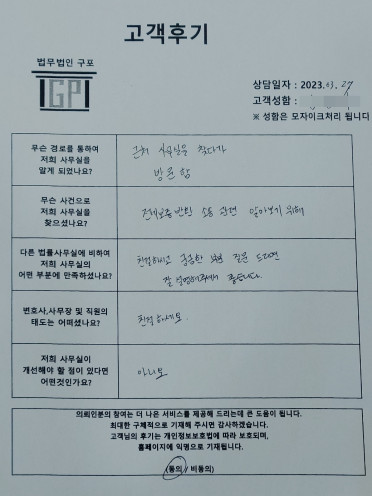 고객후기
법무법인 구포
GP
상담일자 : 2023. 03. 27
고객성함 :
※ 성함은 모자이크처리 됩니다
무슨 경로를 통하여
저희 사무실을
알게 되었나요?
근처 사무실을 찾다가
방문함
무슨 사건으로
저희 사무실을
찾으셨나요?
전세보증반환 소송 관련 알아보기 위해
다른 법률사무실에 비하여
저희 사무실의
어떤 부분에 만족하셨나요?
친절하시고 궁금한 부분 질문 드리면
잘 설명해주셔서 좋습니다.
변호사,사무장 및 직원의
태도는 어떠셨나요?
친절하세요.
저희 사무실이
개선해야 할 점이 있다면
어떤것인가요?
아니요
의뢰인분의 참여는 더 나은 서비스를 제공해 드리는데 큰 도움이 됩니다.
최대한 구체적으로 기재해 주시면 감사하겠습니다.
고객님의 후기는 개인정보보호법에 따라 보호되며,
홈페이지에 익명으로 기재됩니다.
(동의 / 비동의)